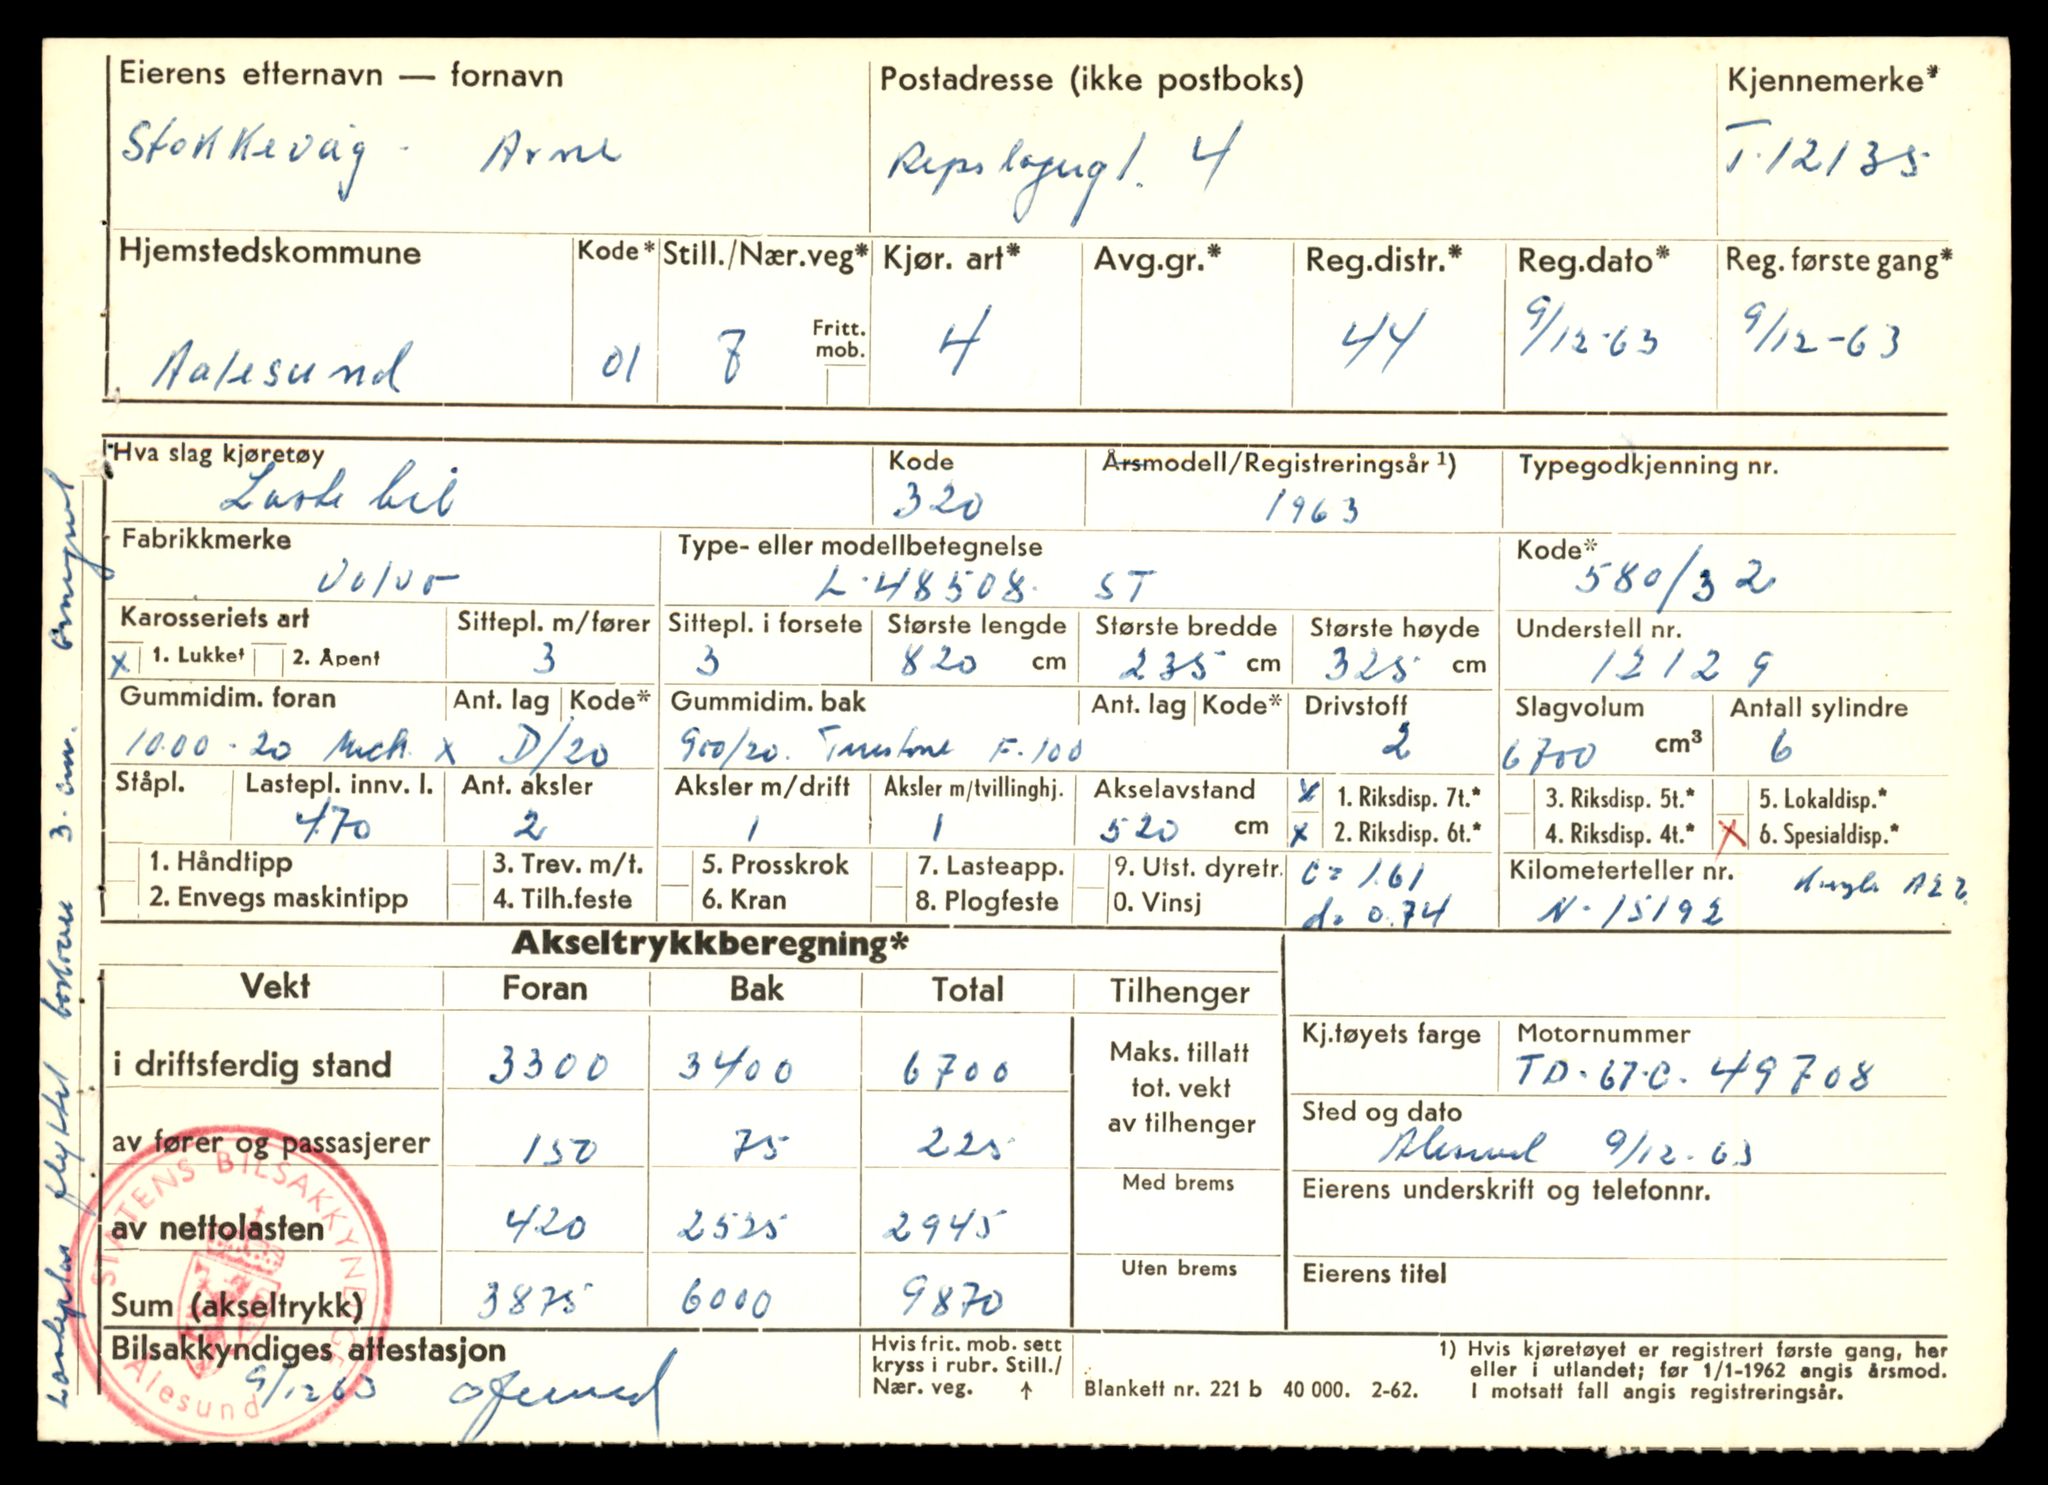 Eierens etternavn — fornavn
Postadresse (ikke postboks)
Kjennemerke*
Stokkevåg - Arne
Repslagergt. 4
T-12135
Hjemstedskommune
Kode*
Still./Nær.veg*
Kjør. art*
Avg.gr.*
Reg.distr.*
Reg.dato*
Reg. første gang*
Fritt. mob.
Aalesund
01
7
4
44
9/12-63
9/12-63
Hva slag kjøretøy
Kode
Årsmodell/Registreringsår ¹)
Typegodkjenning nr.
Laste bil
320
1963
Fabrikkmerke
Type- eller modellbetegnelse
Kode*
Volvo
L-48508. ST
580/32
Karosseriets art
Sittepl. m/fører
Sittepl. i forsete
Største lengde
Største bredde
Største høyde
Understell nr.
x 1. Lukket 2. Åpent
3
3
820 cm
235 cm
325 cm
12129
Gummidim. foran
Ant. lag
Kode*
Gummidim. bak
Ant. lag
Kode*
Drivstoff
Slagvolum
Antall sylindre
10.00-20 Mich. x D/20
900/20. F-100
2
6700 cm³
6
Ståpl.
Lastepl. innv. l.
Ant. aksler
Aksler m/drift
Aksler m/tvillinghj.
Akselavstand
x 1. Riksdisp. 7t.*
3. Riksdisp. 5t.*
5. Lokaldisp.*
470
2
1
1
520 cm
x 2. Riksdisp. 6t.*
4. Riksdisp. 4t.*
x 6. Spesialdisp.*
1. Håndtipp
3. Trev. m/t.
5. Prosskrok
7. Lasteapp.
9. Utst. dyretr.
c = 1.61
Kilometerteller nr.
2. Envegs maskintipp
4. Tilh.feste
6. Kran
8. Plogfeste
0. Vinsj
d = 0.74
N-15192
Akseltrykkberegning*
Vekt
Foran
Bak
Total
Tilhenger
i driftsferdig stand
3300
3400
6700
Maks. tillatt
tot. vekt
av tilhenger
Kj.tøyets farge
Motornummer
TD-67-C-49708
av fører og passasjerer
150
75
225
Sted og dato
Ålesund 9/12-63
av nettolasten
420
2525
2945
Med brems
Eierens underskrift og telefonnr.
Sum (akseltrykk)
3875
6000
9870
Uten brems
Eierens titel
Bilsakkyndiges attestasjon
9/12 63
Hvis frit. mob. sett
kryss i rubr. Still./
Nær. veg. ↑
Blankett nr. 221 b 40 000. 2-62.
1) Hvis kjøretøyet er registrert første gang, her
eller i utlandet; før 1/1-1962 angis årsmod.
I motsatt fall angis registreringsår.
STATENS BILSAKKYNDIGE
Ålesund
Lasteplan flyttet